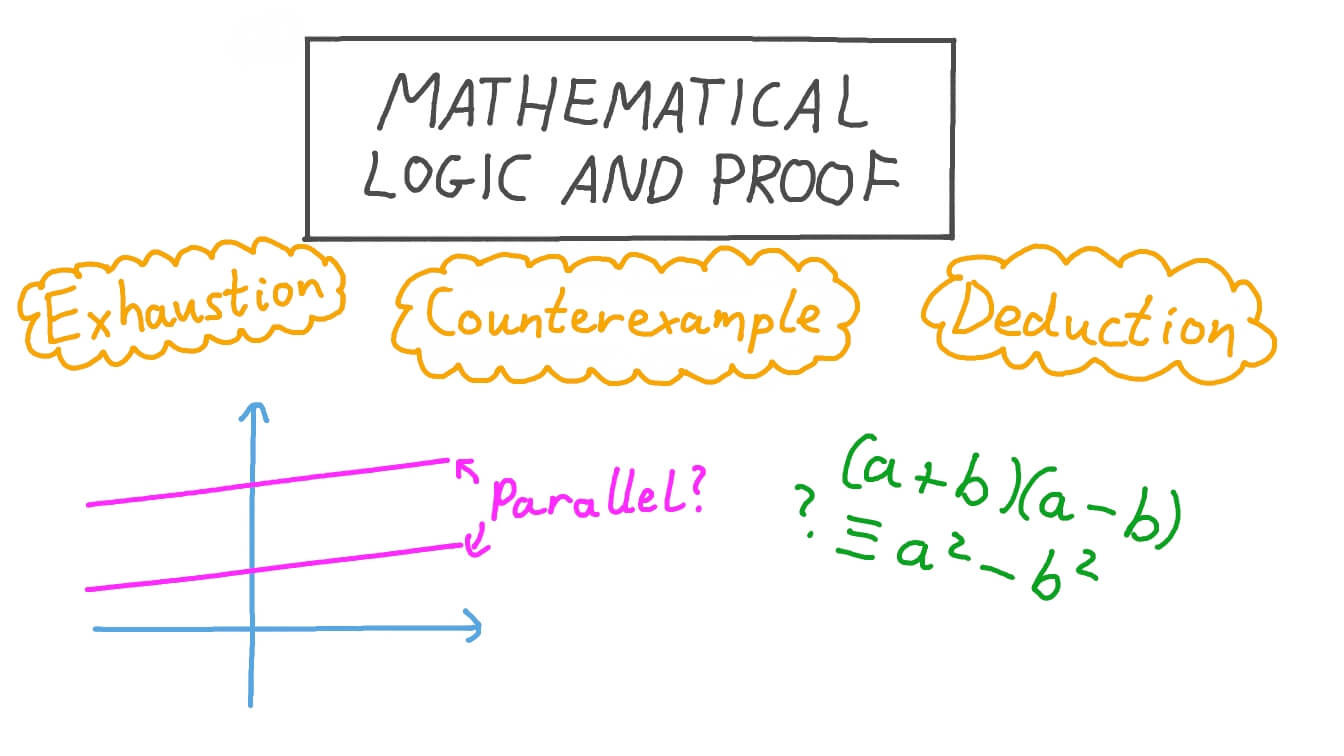 MATHEMATICAL
LOGIC AND PROOF
Exhaustion
Counterexample
Deduction
Parallel?
(a+b)(a-b)
? ≡ a² - b²